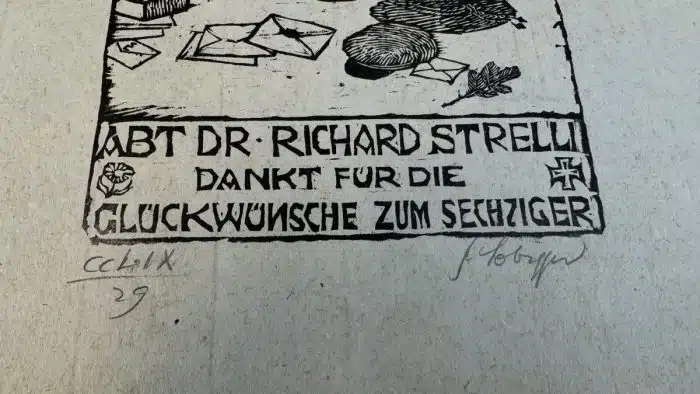 ABT DR· RICHARD STRELLI
DANKT FÜR DIE
GLÜCKWÜNSCHE ZUM SECHZIGER
29